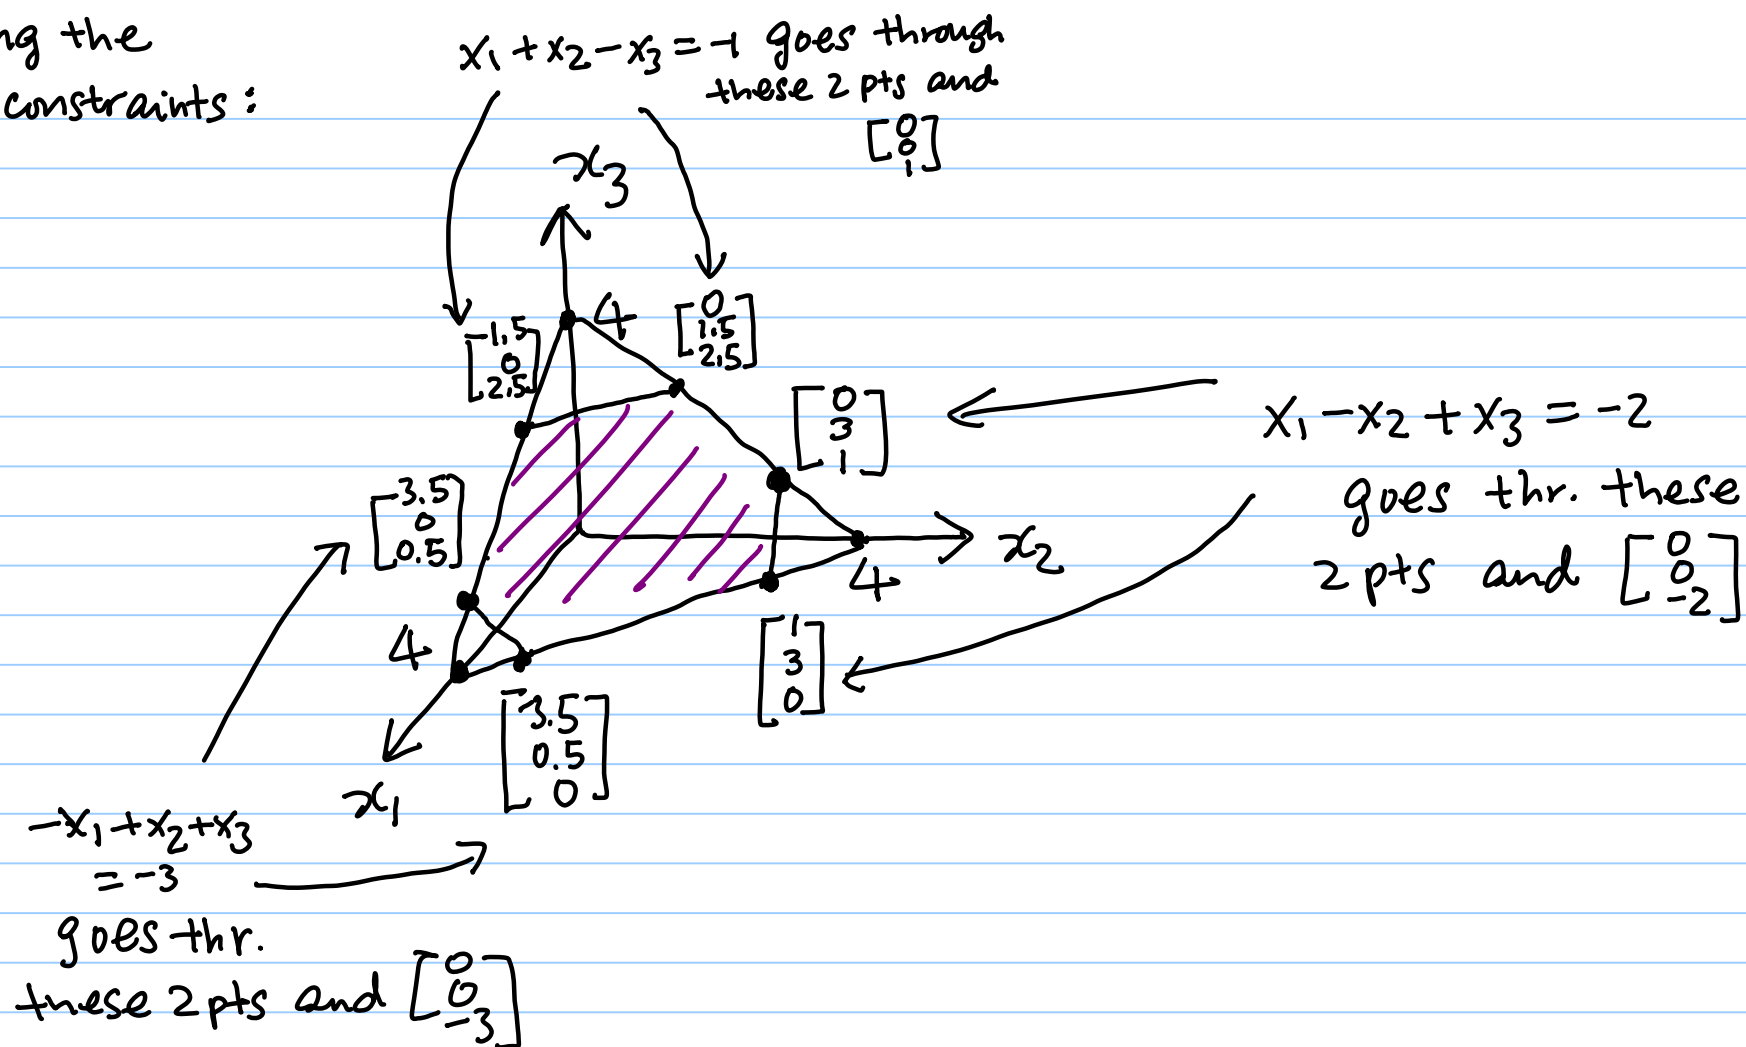 ng the
constraints:
x₁ + x₂ - x₃ = -1 goes through
these 2 pts and
[0
0
1]
x₃
4
[-1.5
0
2.5]
[0
1.5
2.5]
[0
3
1]
x₁ - x₂ + x₃ = -2
goes thr. these
2 pts and [0
0
-2]
[-3.5
0
0.5]
x₂
4
4
[1
3
0]
[3.5
0.5
0]
x₁
-x₁ + x₂ + x₃
= -3
goes thr.
these 2 pts and [0
0
-3]